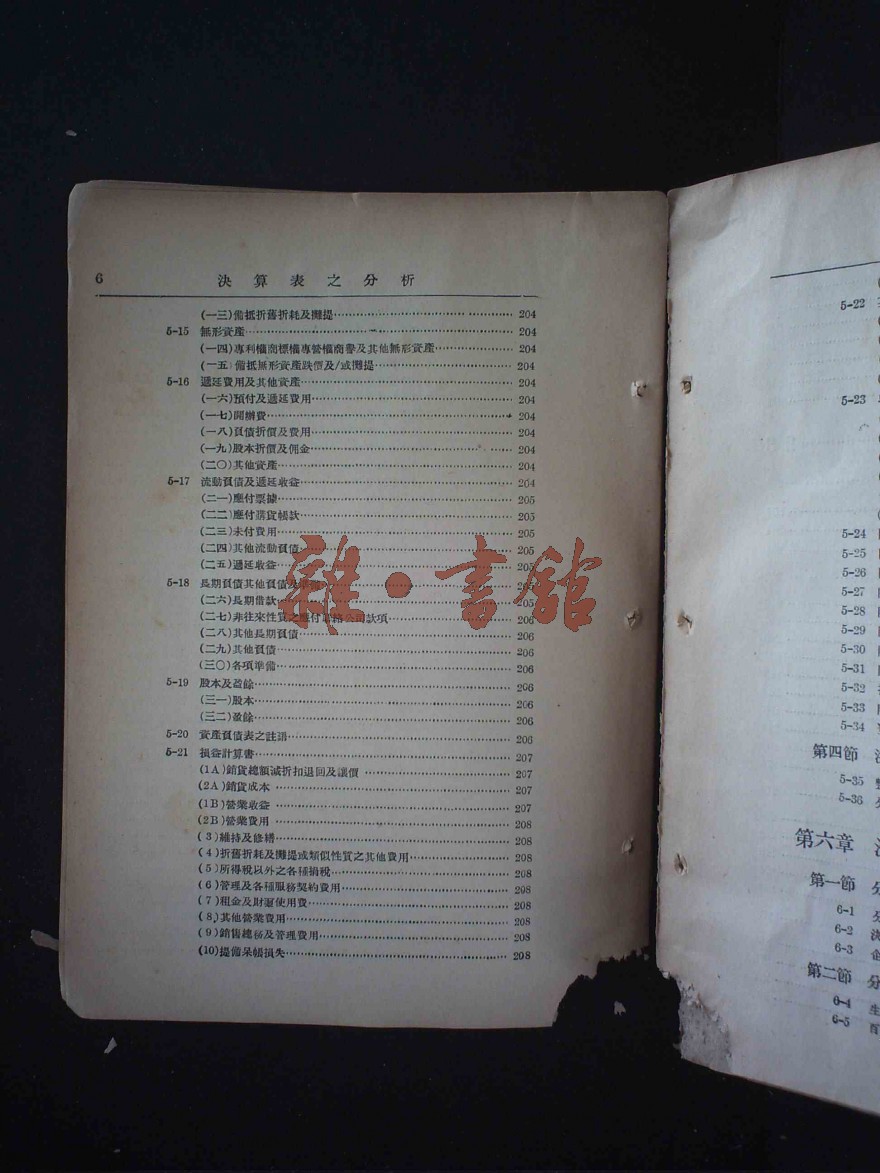 6
決算表之分析
(一三)備抵折舊折耗及攤提 204
5-15 無形資產 204
(一四)專利權商標權專營權商譽及其他無形資產 204
(一五)備抵無形資產跌價及/或攤提 204
5-16 遞延費用及其他資產 204
(一六)預付及遞延費用 204
(一七)開辦費 204
(一八)負債折價及費用 204
(一九)股本折價及佣金 204
(二〇)其他資產 204
5-17 流動負債及遞延收益 204
(二一)應付票據 205
(二二)應付購貨帳款 205
(二三)未付費用 205
(二四)其他流動負債 205
(二五)遞延收益 205
5-18 長期負債其他負債及準備 205
(二六)長期借款 205
(二七)非往來性質之應付聯絡公司款項 206
(二八)其他長期負債 206
(二九)其他負債 206
(三〇)各項準備 206
5-19 股本及盈餘 206
(三一)股本 206
(三二)盈餘 206
5-20 資產負債表之註語 206
5-21 損益計算書 207
(1A)銷貨總額減折扣退回及讓價 207
(2A)銷貨成本 207
(1B)營業收益 207
(2B)營業費用 208
(3)維持及修繕 208
(4)折舊折耗及攤提或類似性質之其他費用 208
(5)所得稅以外之各種捐稅 208
(6)管理及各種服務契約費用 208
(7)租金及財產使用費 208
(8)其他營業費用 208
(9)銷售總務及管理費用 208
(10)提備呆帳損失 208
雜·書館
5-22
5-23
5-24
5-25
5-26
5-27
5-28
5-29
5-30
5-31
5-32
5-33
5-34
第四節
5-35
5-36
第六章
第一節 分
6-1
6-2 決
6-3 企
第二節 分
6-4 生
6-5 百